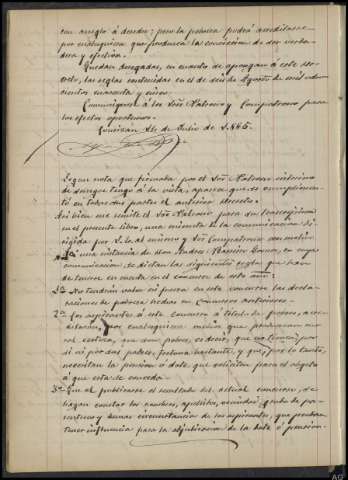 con arreglo á derecho; pero la pobreza podrá acreditarse
por cualquiera que produzca la convicción de ser verda-
dera y efectiva.
Quedan derogadas, en cuanto se opongan á este de-
creto, las reglas contenidas en el de seis de Agosto de mil ocho-
cientos cuarenta y cinco.
Comuníquese á los Sres Patrono y Compatrono para
los efectos oportunos.
24 de Julio de 1.885.
Segun nota que firmada por el Sor Patrono interino
de sangre tengo á la vista, aparece que se cumplimen-
tó en todas sus partes el anterior decreto.
Asi bien me remite el Sor Patrono para su trascripcion
en el presente libro, una minuta de la comunicacion di-
rigida por S. S. al mismo y Sor Compatrono con motivo
de una instancia de don Andres Ramón, en cuya
comunicacion se dictan las siguientes reglas que han
de tenerse en cuenta en el concurso de este año:
1ª No tendrán valor ni fuerza en este concurso las decla-
raciones de pobreza hechas en concursos anteriores.
2ª Los aspirantes á este concurso á título de pobres, acre-
ditarán, por cualesquiera medios que produzcan mo-
ral certeza, que son pobres, es decir, que no tienen por
sí ni por sus padres, fortuna bastante, y que, por lo tanto,
necesitan la pension ó dote que solicitan para el objeto
á que esta se conceda.
3ª Que al publicarse el resultado del actual concurso, se
hagan constar los nombres, apellidos, vecindad, grado de pa-
rentesco y demas circunstancias de los aspirantes, que puedan
tener influencia para la adjudicacion de la dote ó pension.
AG